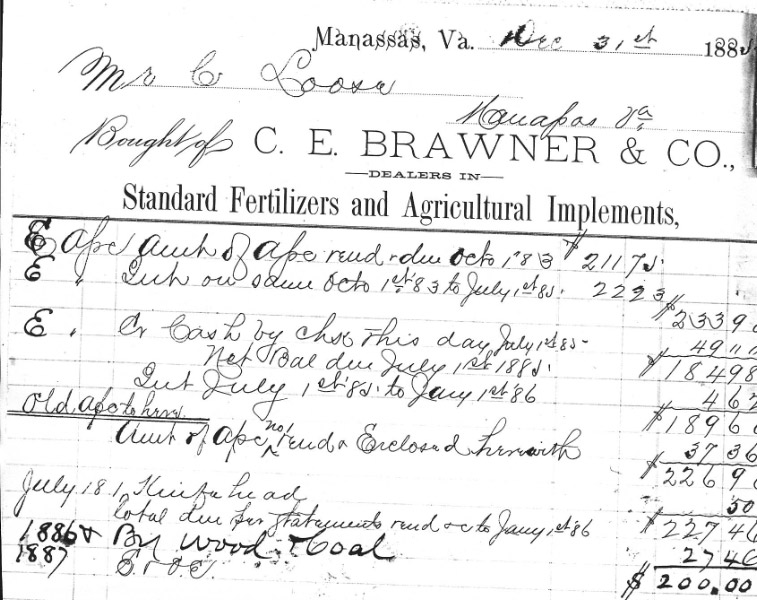 Manassas, Va. Dec 31st 1885
Mr C Loose
Manassas Va
Bought of C. E. BRAWNER & CO.,
DEALERS IN
Standard Fertilizers and Agricultural Implements,
E a/pc Amt of a/pc rend & due Octo 1st 83 $ 2117 5
E " Int on same Octo 1st 83 to July 1st 85. 222 3
$ 2339
E " Cr Cash by chx This day July 1st 85 49 " "
Net Bal due July 1st 1885. $ 1849 8
Int July 1st 85 to Jany 1st 86 4 62
Old a/pc to here $ 1896
Amt of a/pc no 1 rend & Enclosed herewith 37 36
$ 2269
July 18 1 Knife head 50
total due per statements rend &c to Jany 1st 86 $ 227 46
1886 & By Wood & Coal 27 46
1887 E & O E. $ 200.00